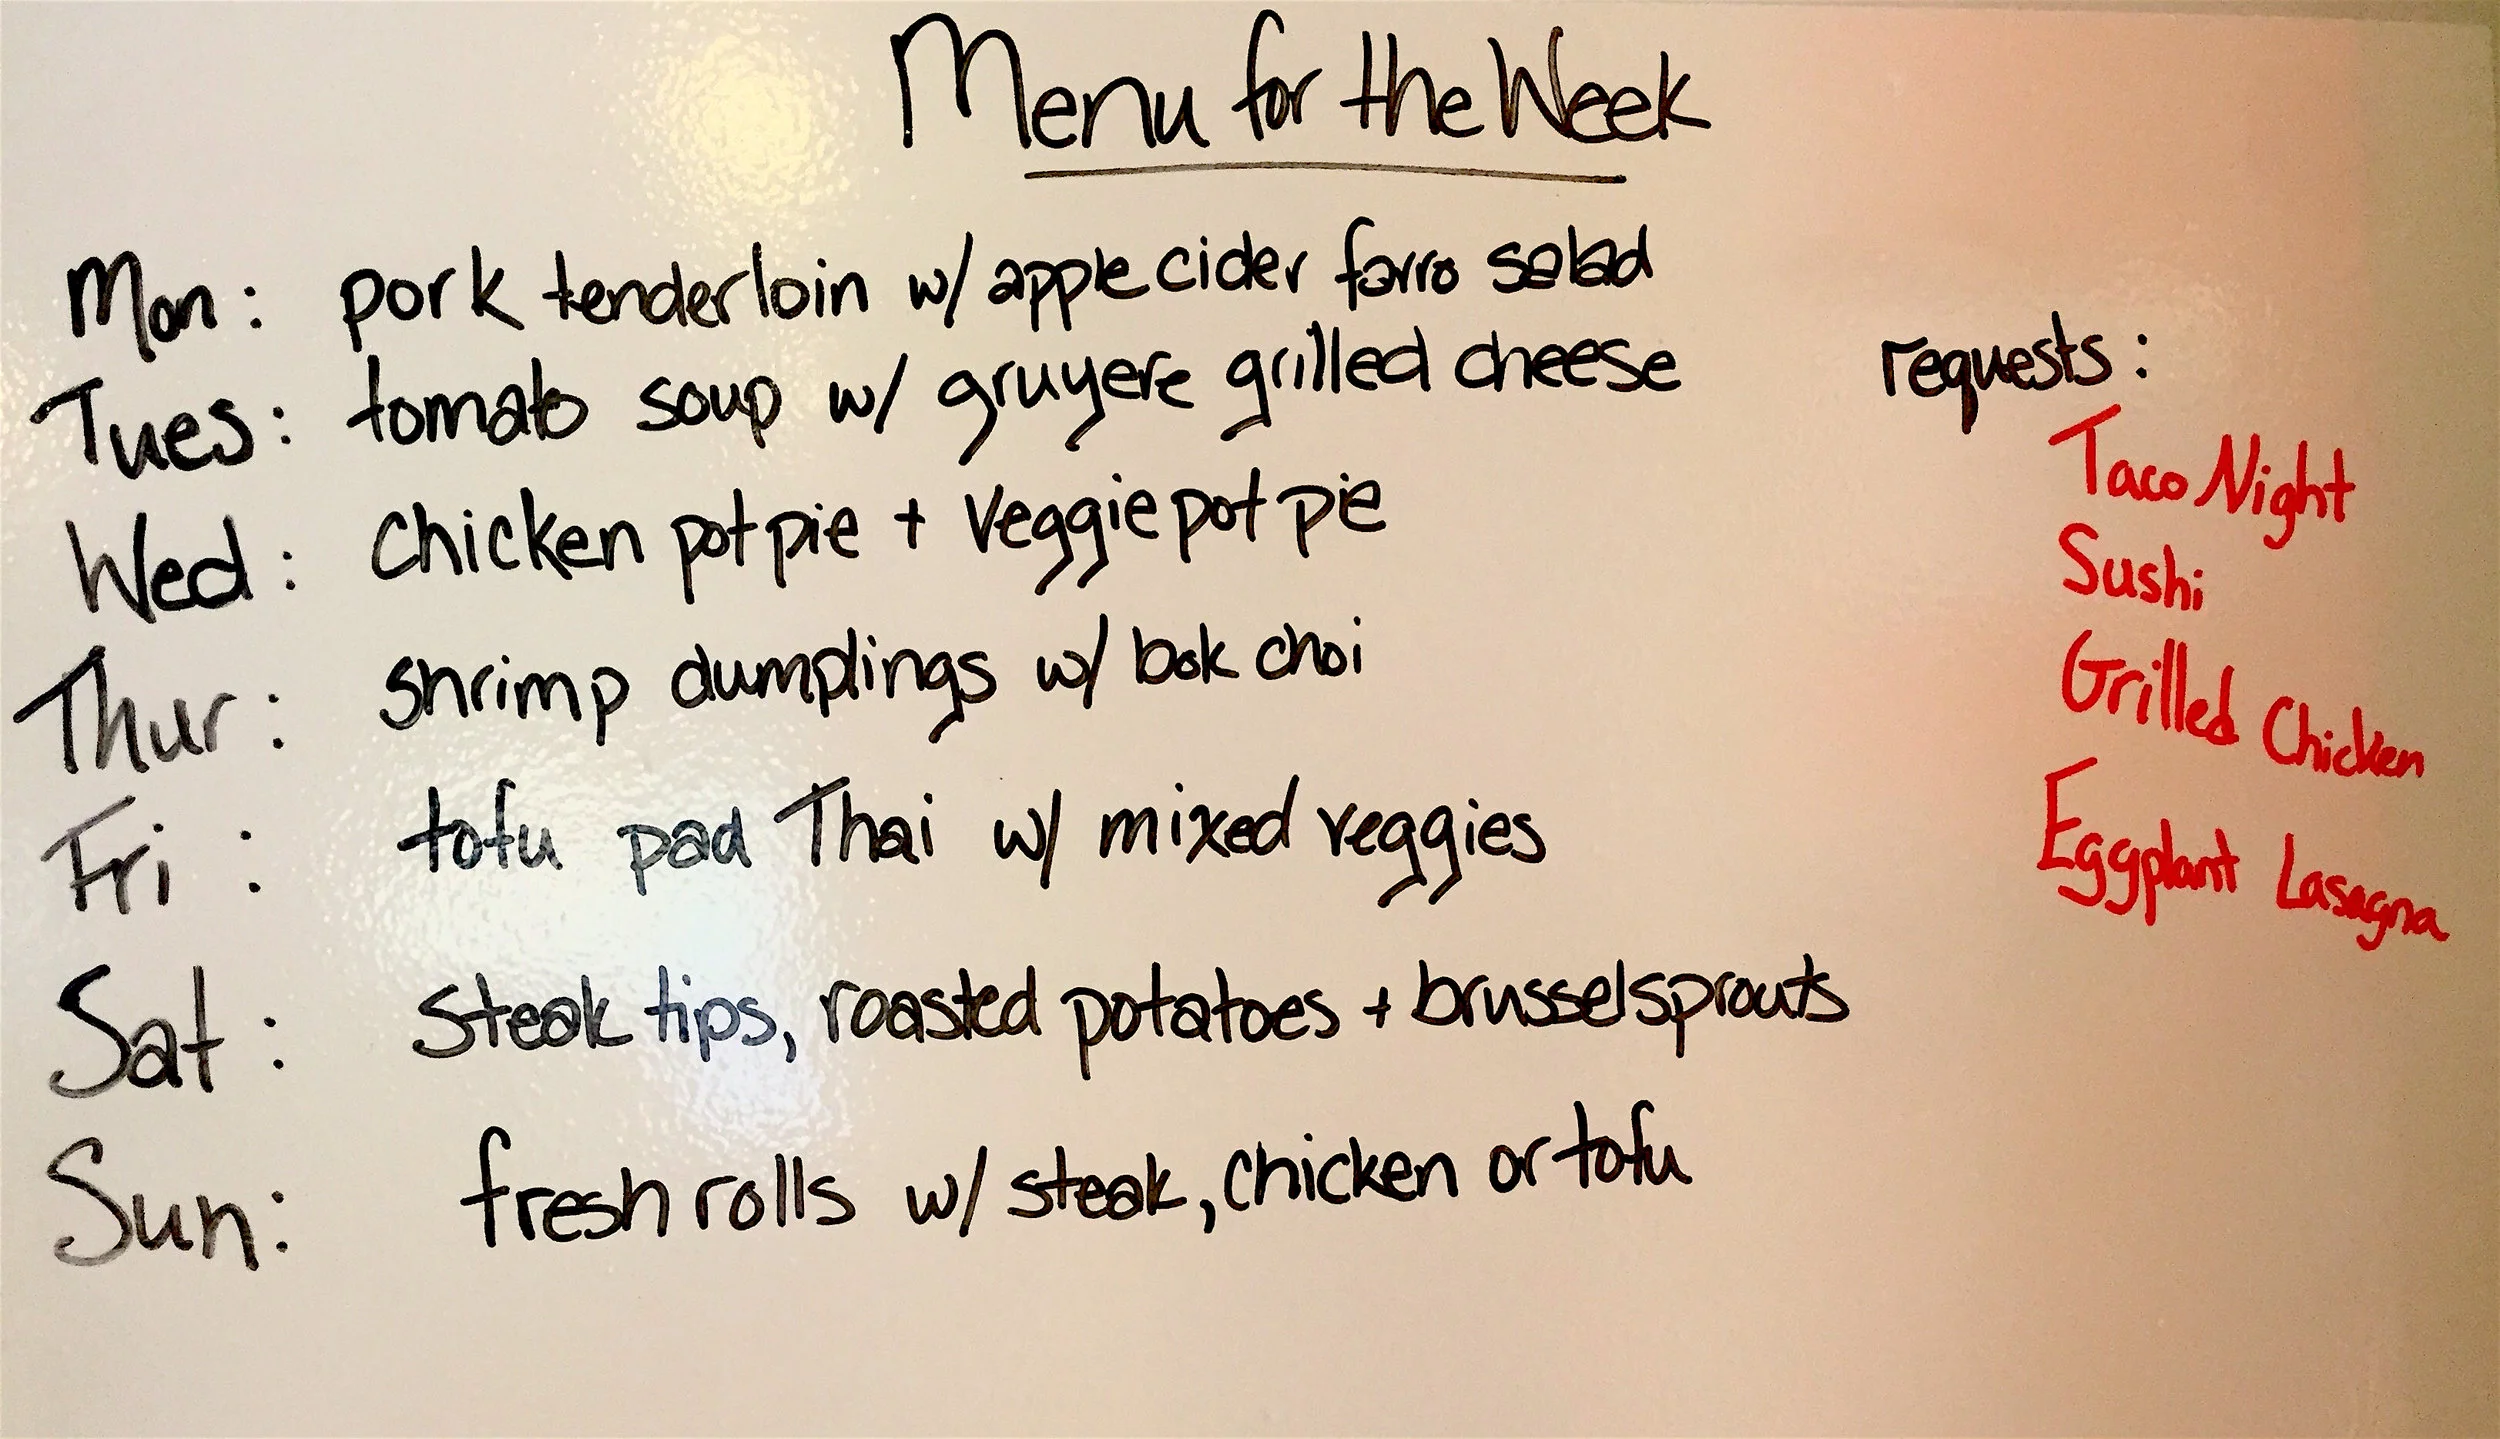 Menu for the Week
Mon: pork tenderloin w/ apple cider farro salad
Tues: tomato soup w/ gruyere grilled cheese
Wed: Chicken pot pie + Veggie pot pie
Thur: shrimp dumplings w/ bok choi
Fri: tofu pad Thai w/ mixed veggies
Sat: Steak tips, roasted potatoes + brussel sprouts
Sun: fresh rolls w/ steak, chicken or tofu
requests:
Taco Night
Sushi
Grilled Chicken
Eggplant Lasagna